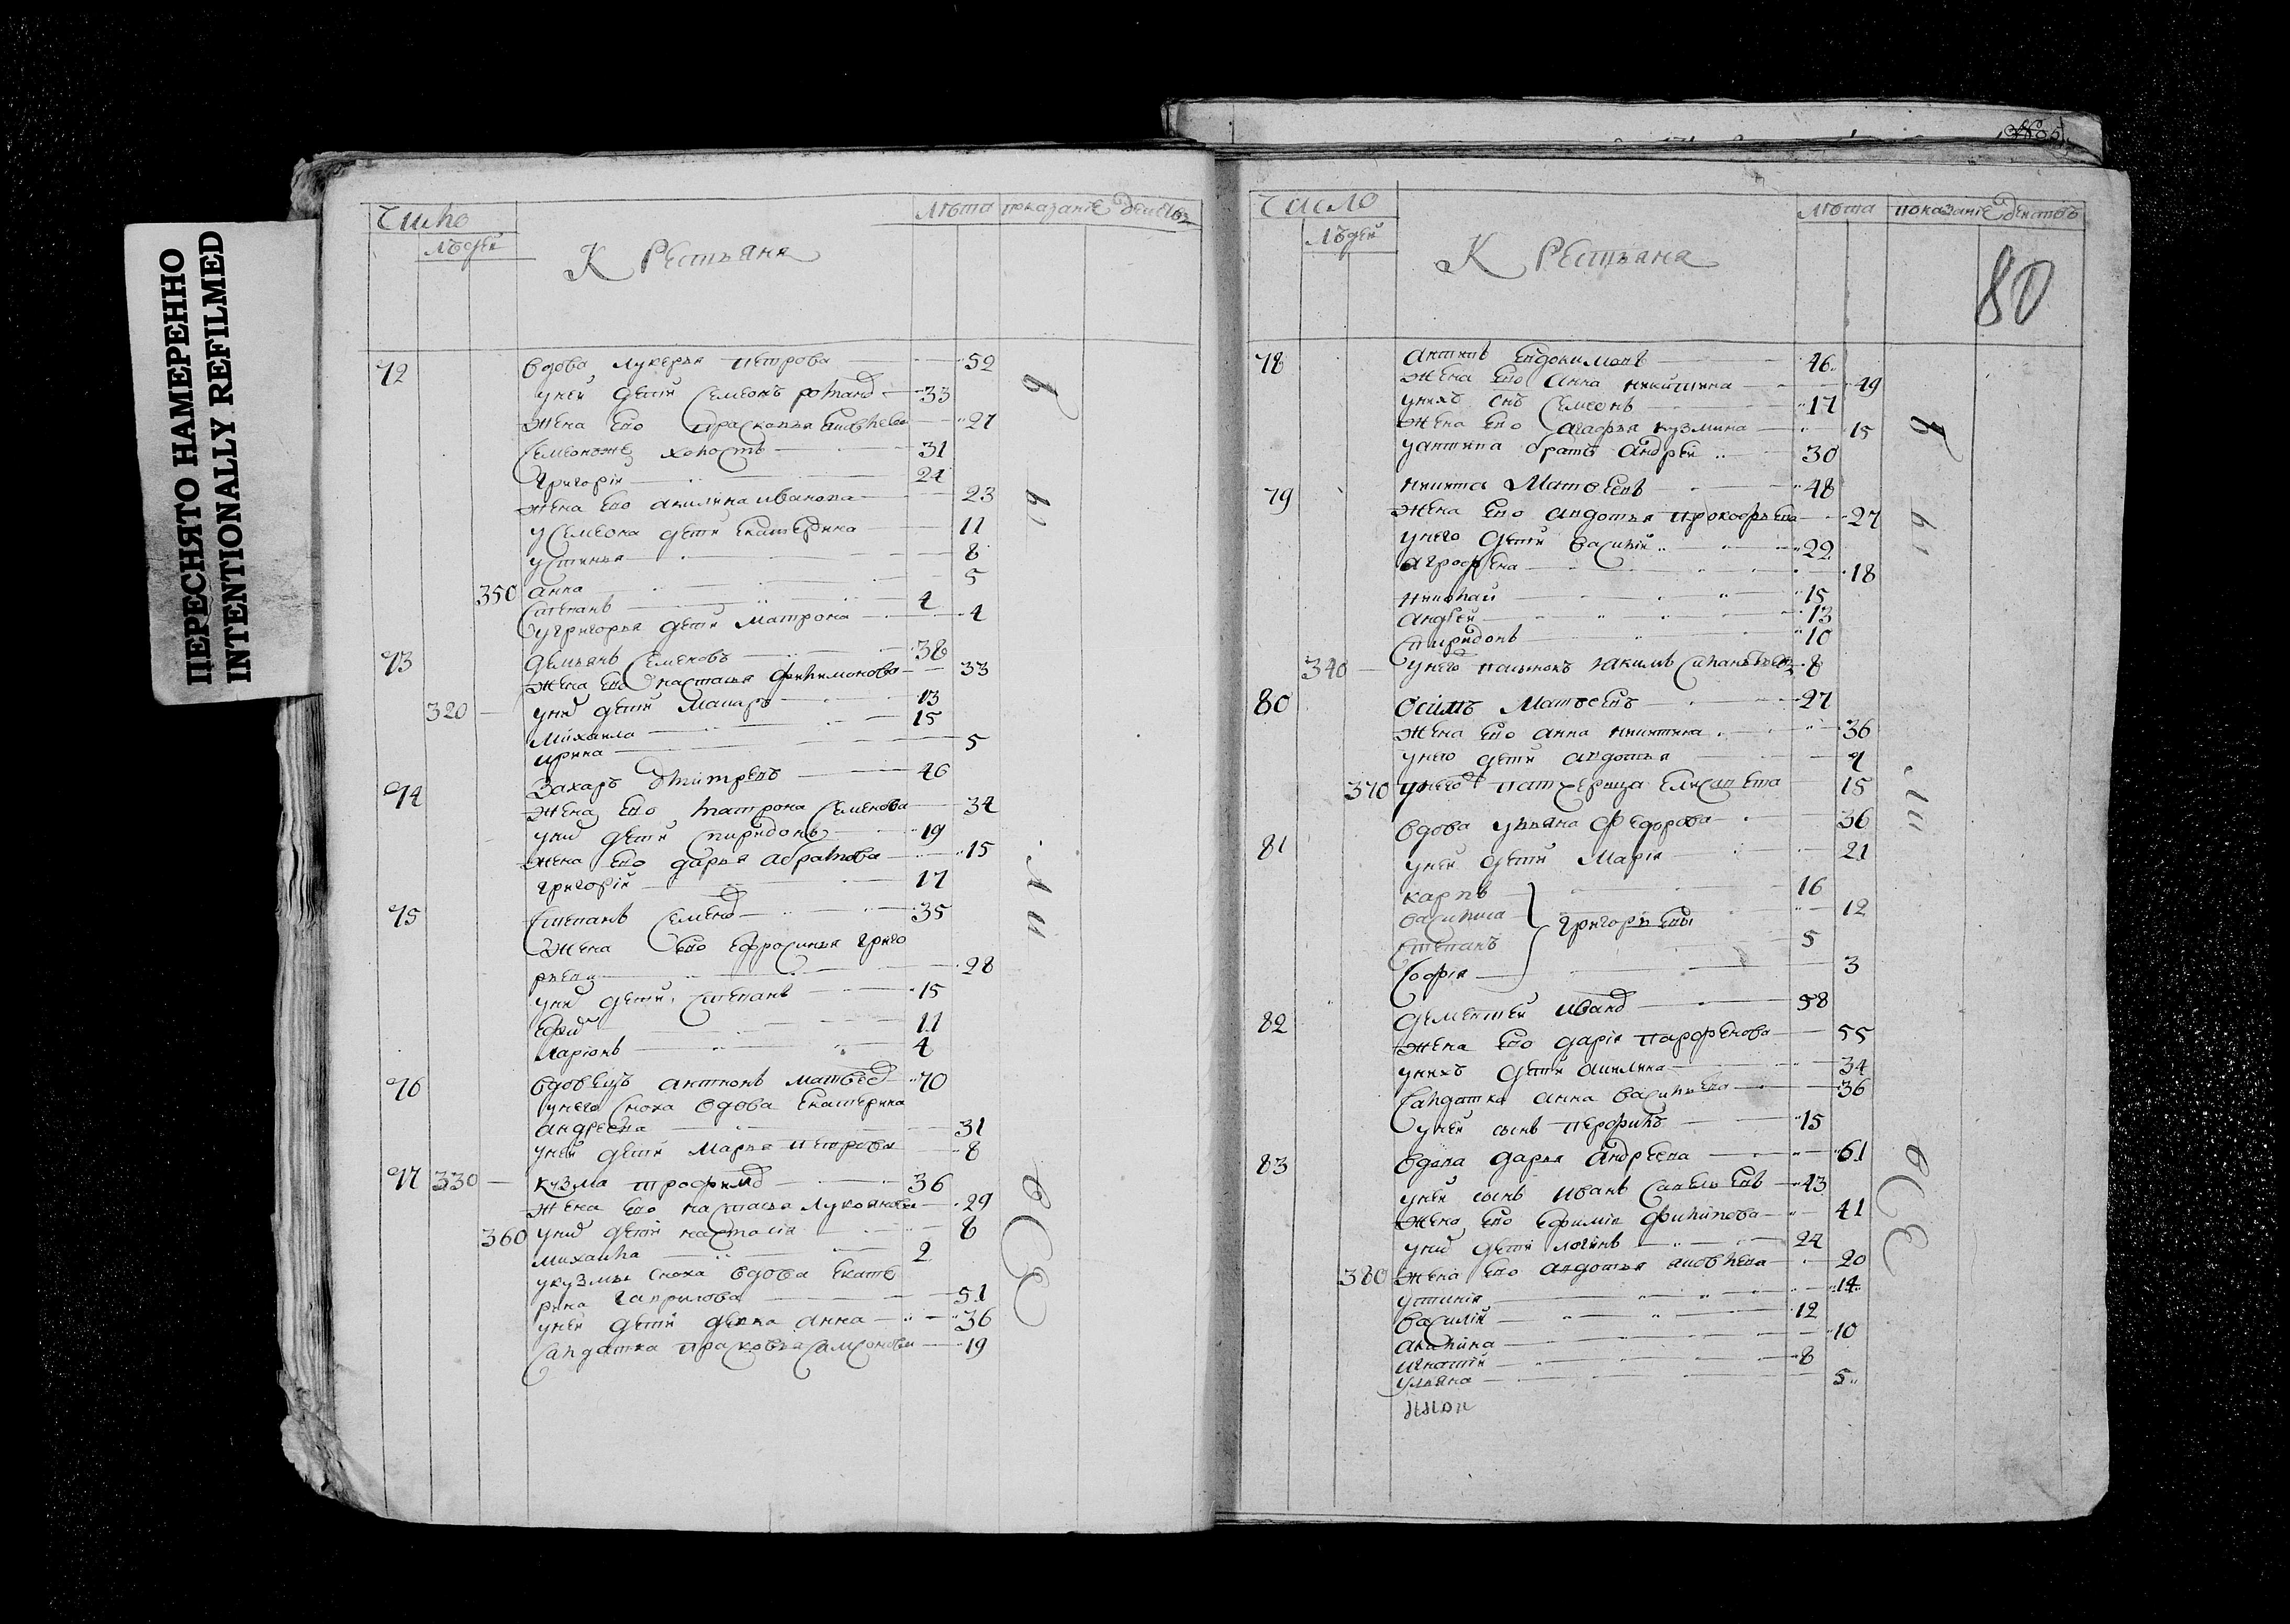 ПЕРЕСНЯТО НАМЕРЕННО
INTENTIONALLY REFILMED
Число Лѣта показаніе
людей
Крестьяне
72 вдова Лукерья Петрова 52
у ней дети Семеонъ 33
жена ево Прасковья 27
Семеонже холостъ 31
Григорій 24
жена ево Акилина Иванова 23
у Семеона дети Екатерина 11
Устинья 8
350 Анна 5
Степанъ 4
у Григорья дети Матрона 4
73 Демьянъ Семеновъ 38
жена ево Настасья Филимонова 33
320 у них дети Макаръ 13
Михаила 15
Ирина 5
74 Захаръ Дмитревъ 46
жена ево Матрона Семенова 34
у них дети Спиридонъ 19
жена ево Дарья Абрамова 15
Григорій 17
75 Степанъ Семено 35
жена ево Ефросинья Григо
рьева 28
у них дети Степанъ 15
Ефим 11
Ларіонъ 4
76 вдовецъ Антионъ Матвее 70
у него сноха вдова Екатерина
Андреева 31
у ней дети Марья Петрова 8
77 330 Кузма Трофимо 36
жена ево Настасья Лукоянова 29
360 у них дети Насталія 8
Михаила 2
у Кузмы сноха вдова Екате
рина Гаврилова 51
у ней дети девка Анна 36
Салдатка Прасковья Самсонова 19
въ
ы
ли
все
Число Лѣта показаніе
людей
Крестьяне
80
78 Антипъ Евдокимовъ 46
жена ево Анна Никитина 49
у нихъ снъ Семеонъ 17
жена ево Агафья Кузмина 15
у Антипа братъ Андрей 30
79 Никита Матвеевъ 48
жена ево Авдотья Прокофьева 27
у него дети Василій 22
Аграфена 18
Николай 15
Андрей 13
Спиридонъ 10
340 у него пасынокъ Иакимъ 8
80 Осипъ Матвеевъ 27
жена ево Анна Никитина 36
у него дети Авдотья 9
370 у него патчерица Елисавета 15
81 вдова Ульяна Федорова 36
у ней дети Марія 21
Карпъ 16
Василиса 12
Григорьевы
Степанъ 5
Софія 3
82 Дементей Ивано 58
жена ево Дарія Парфенова 55
у нихъ дети Акилина 34
Салдатка Анна Васильева 36
у ней сынъ Перфилъ 15
83 вдова Дарья Андреева 61
у ней сынъ Иванъ Савельевъ 43
жена ево Ефимія Филипова 41
у них дети Логинъ 24
380 жена ево Авдотья Яковлева 20
Устинія 14
Василій 12
Акилина 10
Игнатій 8
Ульяна 5
въ
ы
ли
все